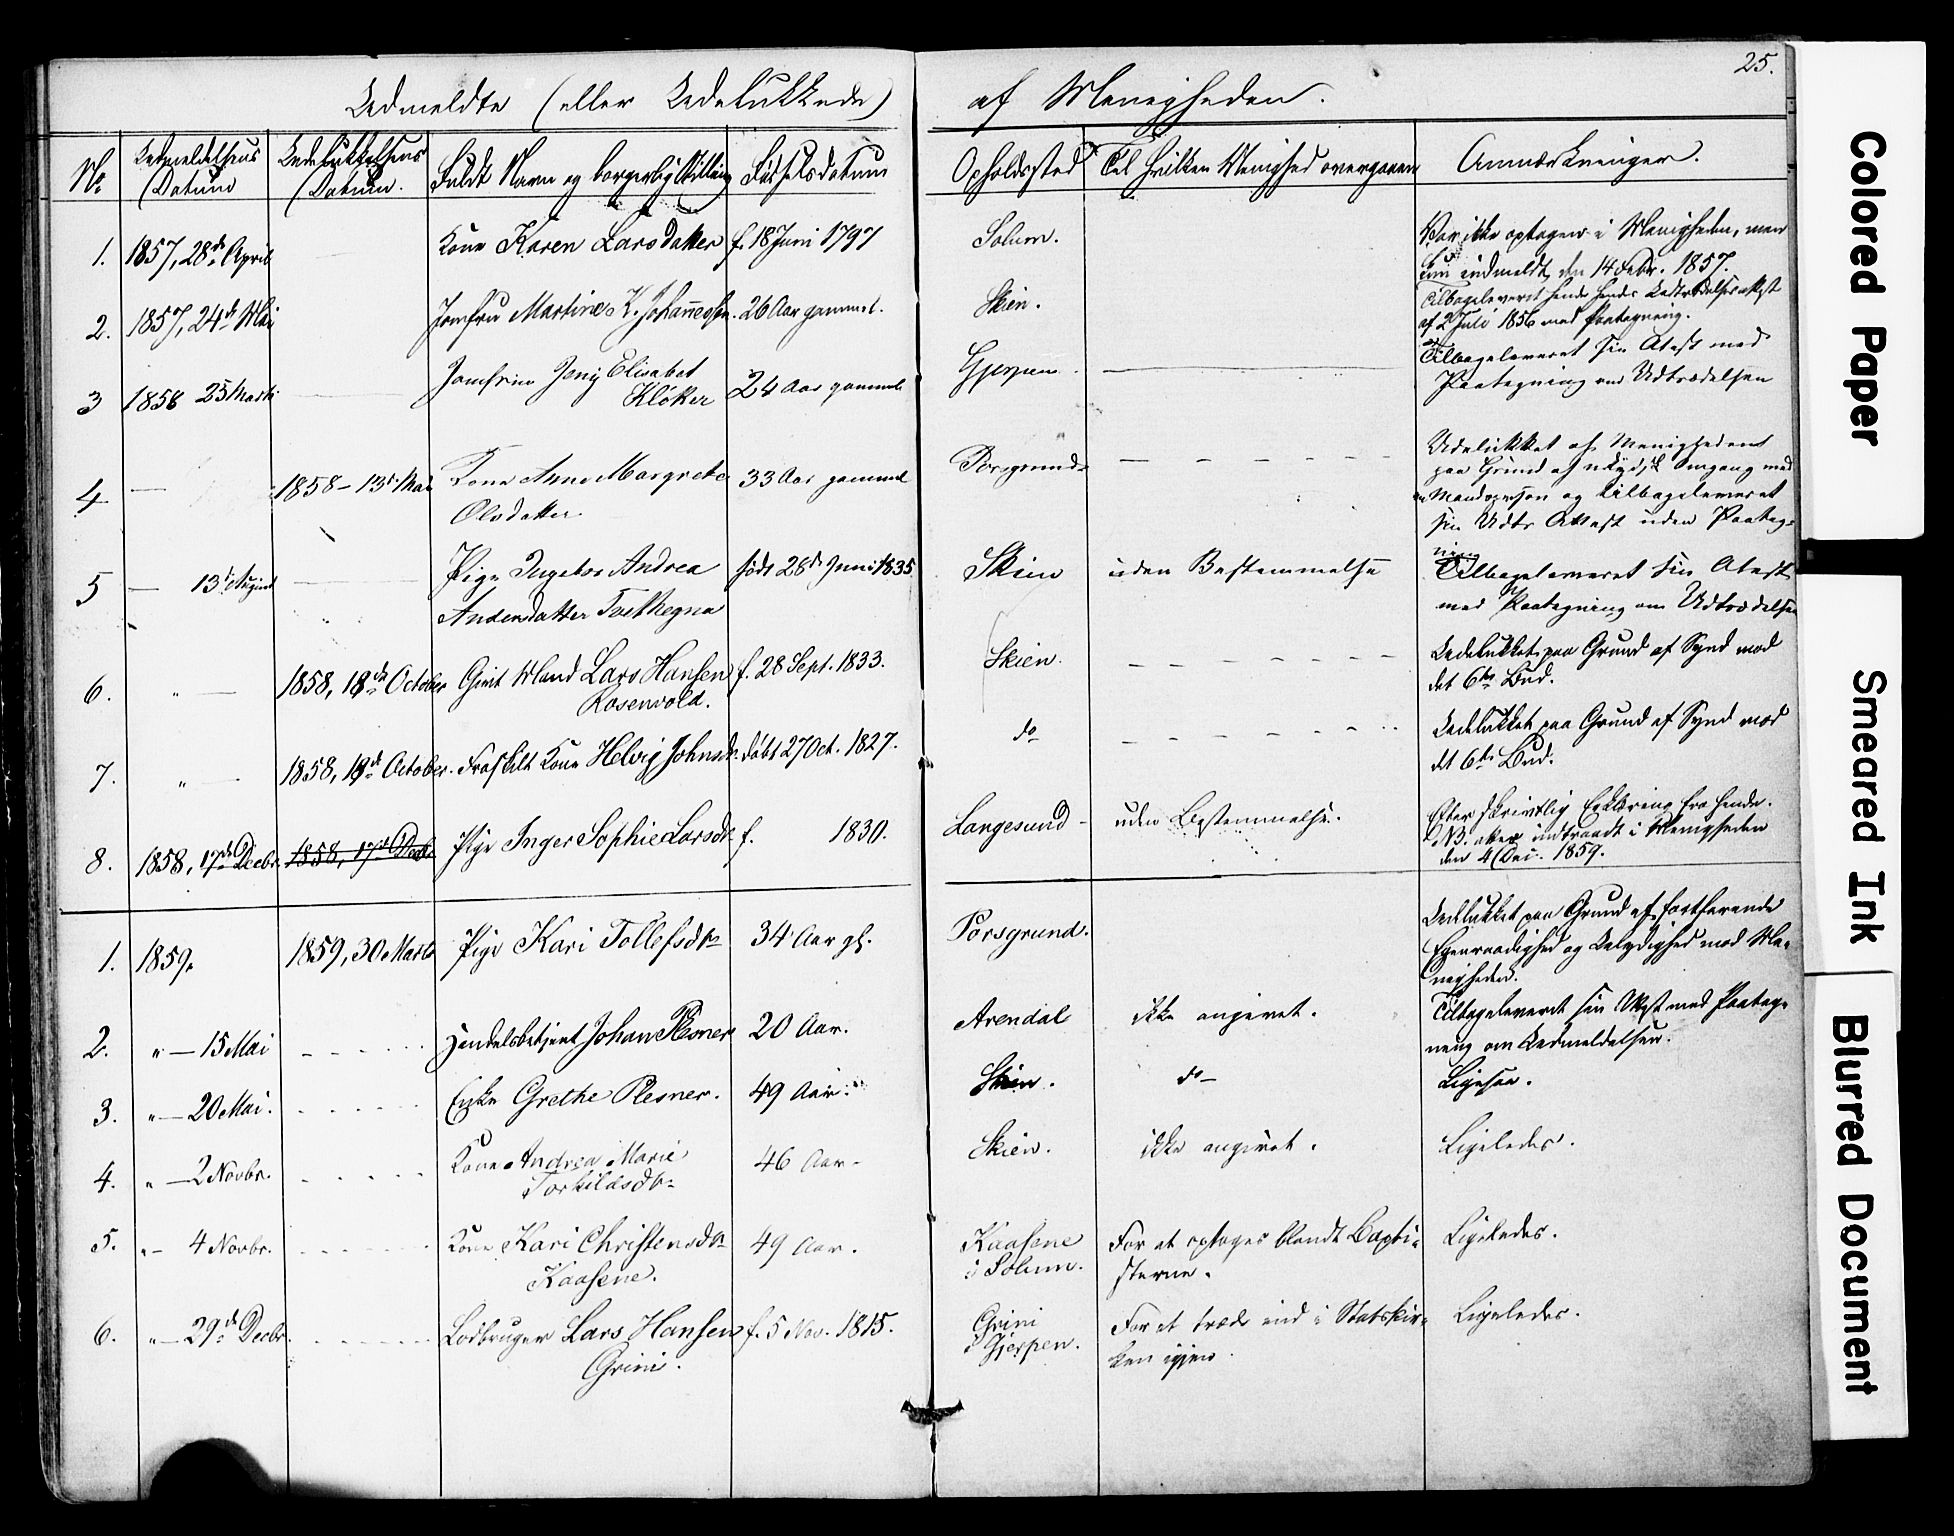 25.
Udmeldte (eller Udelukkede) af Menigheden.
No Udmeldelsens Datum Udelukkelsens Datum. Fuldt Navn og borgerlig Stilling Fødselsdatum Opholdssted Til hvilken Menighed overgaaen Anmærkninger.
1. 1857, 28de April Kone Karen Larsdatter f. 18 Juni 1797 Solum. Var ikke optagen i Menigheden, men
kun indmeldt den 14 Febr. 1857.
2. 1857, 24de Mai Jomfru Martine K. Johannessen. 26 Aar gammel. Skien. Tilbageleveret hende hendes Udtrædelsesattest
af 2 Juli 1856 med Paategning.
3 1858 25 Marts Jomfru Jenny Elisabet
Kløker 24 Aar gammel Gjerpen Tilbageleveret sin Atest med
Paategning om Udtrædelsen
4 — 1858 – 13de Mai Kone Anne Margrete
Olsdatter 33 Aar gammel Porsgrund Udelukket af Menigheden
paa Grund af utugtig Omgang med
en Mandsperson og tilbageleveret
sin Udts Attest uden Paateg-
ning
5 — 13de August Pige Ingeborg Andrea
Andersdatter Tvethegna født 28de Juni 1835 Skien uden Bestemmelse Tilbageleveret sin Atest
med Paategning om Udtrædelsen
6. " — 1858, 18de October Givt Mand Lars Hansen
Rosenvold. f. 28 Sept. 1833. Skien. Udelukket paa Grund af Synd mod
det 6te Bud.
7. " — 1858, 19de October. Fraskilt Kone Helvig Johnsdr. døbt 27 Oct. 1827. do Udelukket paa Grund af Synd mod
det 6te Bud.
8. 1858, 17de Decbr. 1858, 17de Decbr. Pige Inger Sophie Larsdr f. 1830. Langesund – uden Bestemmelse. Efter skrivtlig Erklæring fra hende.
NB. atter indtraadt i Menigheden
den 4 Dec. 1859.
1. 1859. 1859, 30 Marts Pige Kari Tollefsdr 34 Aar gl. Porsgrund. Udelukket paa Grund af fortfarende
Egenraadighed og Ulydighed mod Me-
nigheden.
2. " — 15 Mai Handelsbetjent Johan Plesner 20 Aar. Arendal ikke angivet. Tilbageleveret sin Attest med Paateg-
ning om Udmeldelsen.
3. " — 20 Mai. Enke Grethe Plesner. 49 Aar. Skien. do – Ligesaa.
4. " — 2 Novbr. Kone Andrea Marie
Torkildsdr 46 Aar. Skien. ikke angivet. Ligeledes.
5. " – 4 Novbr. Kone Kari Christensdr
Kaasene. 49 Aar. Kaasene
i Solum. For at optages blandt Bapti-
sterne. Ligeledes.
6. " — 29de Decbr. Lodbruger Lars Hansen
Grini. f. 5 Nov. 1815. Grini
i Gjerpen. For at træde ind i Statskir-
ken igjen. Ligeledes.
Colored Paper
Smeared Ink
Blurred Document